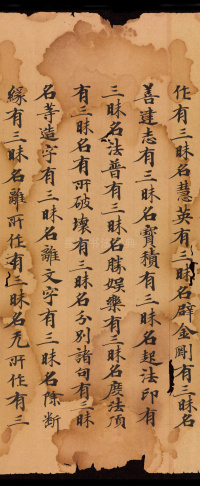 任有三昧名慧英有三昧名辟金剛有三昧名
善建志有三昧名寶積有三昧名起法印有
三昧名法普有三昧名勝娛樂有三昧名度法頂
有三昧名有所破壞有三昧名分別諸句有三昧
名等造字有三昧名離文字有三昧名除斷
緣有三昧名離所任有三昧名无所任有三